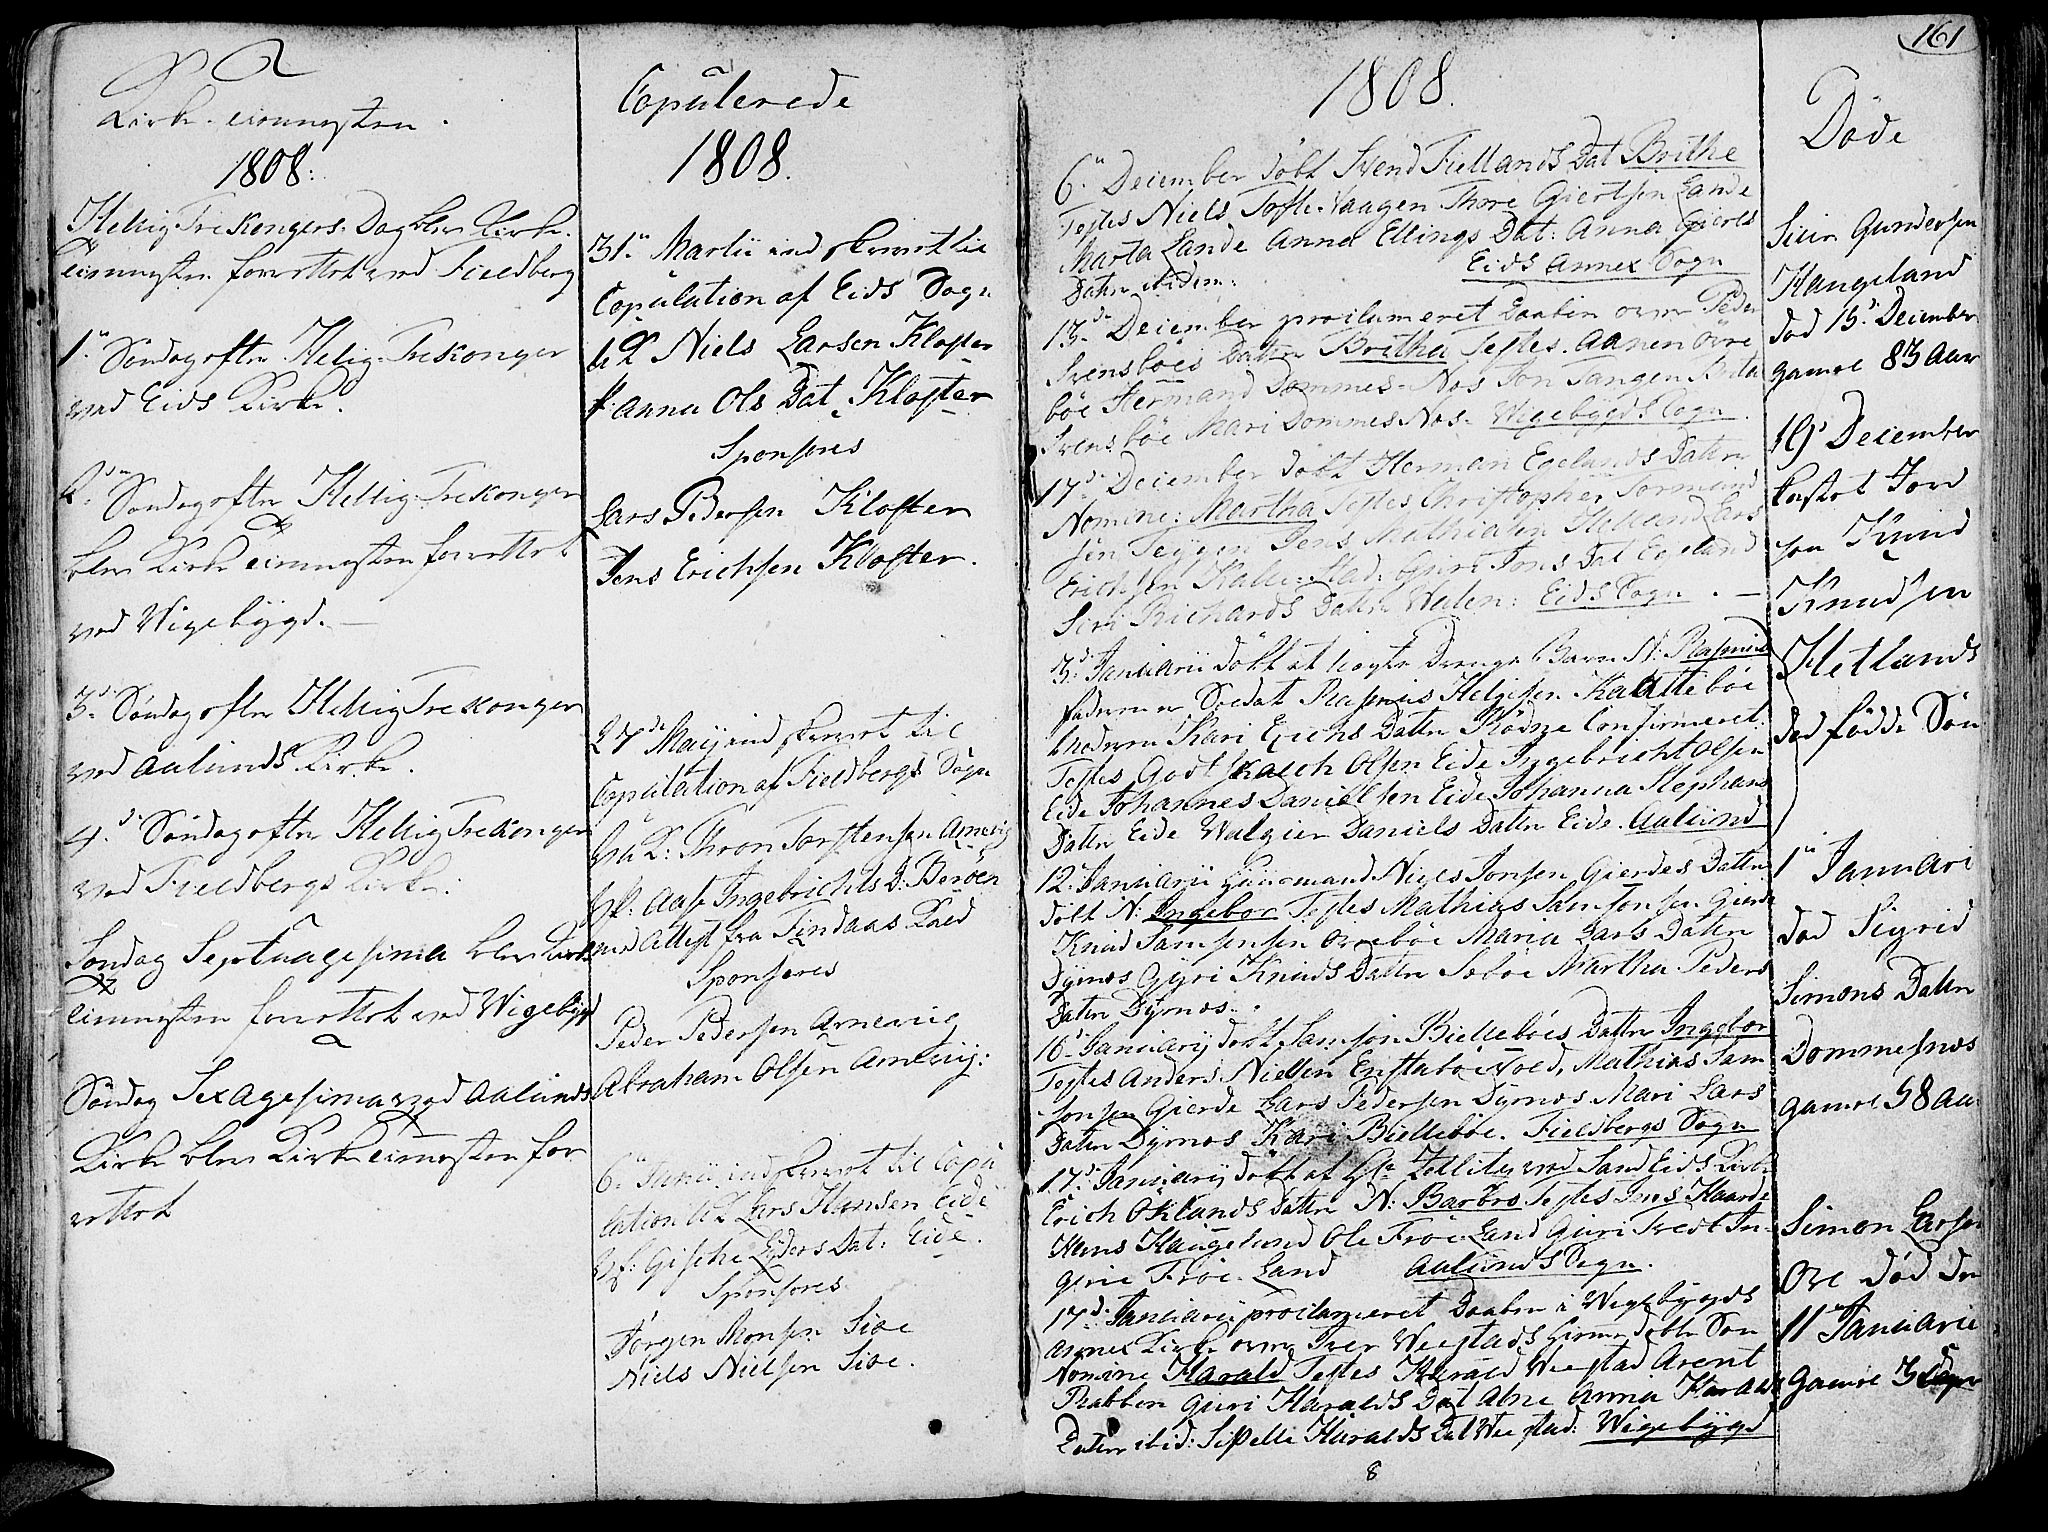 Kirke-
1808:
Hellig Trekongers Dag blev Kirke-
forrettet ved Fieldberg
1.ⁿ Søndag efter Hellig-Trekonger
ved Eids Kirke.
2.ⁿ Søndag efter Hellig-Trekonger
blev Kirke forrettet
ved Wigebÿgd.—
3. Søndag efter Hellig Trekonger
ved Aalunds Kirke.
4. Søndag efter Hellig Trekonger
ved Fieldbergs Kirke.
Søndag Septuagesima blev Kirke
forrettet ved Wigebygd
Søndag Sexagesima ved Aalunds
Kirke blev Kirke for
rettet
Copulerede
1808.
31. Martii indskrevet til
Copulation af Eids Sogn
Niels Larsen Kloster
P: Anna Ols Dat. Kloster
Sponsores
Lars Pedersen Kloster
Jens Erichsen Kloster.
27.de Maij indskrevet til
Copulation af Fieldbergs Sogn
K: Thron Torstensen Arnevig
P: Aase Ingebrichts D: Børøen
med Attest fra Findaas
Sponsores
Peder Pedersen Arnevig
Abraham Olsen Arnevig:
6. Junii indskrevet til Copu
lation Lars Hansen Eide
P: Gische Dat: Eide.
Sponsores
Jørgen Monsen Siøe
Niels Nielsen Siøe.
161
1808.
6. December døbt Svend Fiellands Dat Brithe
Testes Niels Tofte-Vaagen Thore Giertsen Lande
Marta Lande Anna Ellings Dat: Anna Gierts
Datter ibidem: Eids Annex Sogn
13.de December proclameret Daaben over Peder
Svensbøes Datter Britha Testes. Aanen øvre
bøe Hermand Dommes-Nos Jon Tangen Brita
Svensbøe Mari Dommes Nos- Wigebygds Sogn.
17.de December døbt Herman Egelands Datter
Nomine: Martha Testes Christopher Tormund
sen Jens Mathiasen Helland Lars
Erichsen Guri Jons Dat Egeland
Siri Richards Datter Walen: Eids Sogn.—
3. Januarii døbt et uægte Drenge Barn N: Rasmus
faderen er Soldat Rasmus Helgesen Kaattebøe
moderen Kari Datter Rødne Confirmeret.
Testes Godtskalch Olsen Eide Ingebricht Olsen
Eide Johannes Danielsen Eide Johanna Stephans
Datter Eide Walgier Daniels Datter Eide. Aalund
12. Januarii Huusmand Niels Jonsen Gierdes Datter
døbt N: Ingebor Testes Mathias Samsonsen Gierde
Knud Samsonsen Ovrebøe Maria Lars Datter
Dÿrnes Gÿri Knuds Datter Sebøe Martha Peders
Daten Dÿrnos.
16. Januarij døbt Samson Biellebøes Datter Ingebor
Testes Anders Nielsen Mathias Sam
sonsen Gierde Lars Pedersen Dyrnes Mari Lars
Daten Dÿrnos Kari Biellebøe. Fieldbergs Sogn
17. Januarij døbt af Hr Zetlitz ved Sand Eids Kirke
Erich Øklands Datter N: Barbro Testes Jens Haarde
Hans Haugelund Ole Frøe-Land Guri In-
grie Frøe-Land Aalunds Sogn.
17. Januarii proclameret Daaben i Wigebÿgds
Annex Kirke over Iver Weestads hiemmedøbte Søn
Nomine Harald Testes Harald Weestad Arent
Rabben Guri Haralds Dat Alne Anna Haralds
Daten ibid: Siselle Haralds Dat Weestad: Wigebÿgd
8
Døde
Siur Gundersen
Haugeland
død 13. December
gamel 83 Aar
19 December
kastet Jord
paa Knud
Knudsen
Hetlands
dødfødde Søn
1.ⁿ Januari
død Sigrid
Simons Datter
Dommesnos
gamel 58 Aar
Simon Larsen
Øre død den
11 Januarie
gamel 3